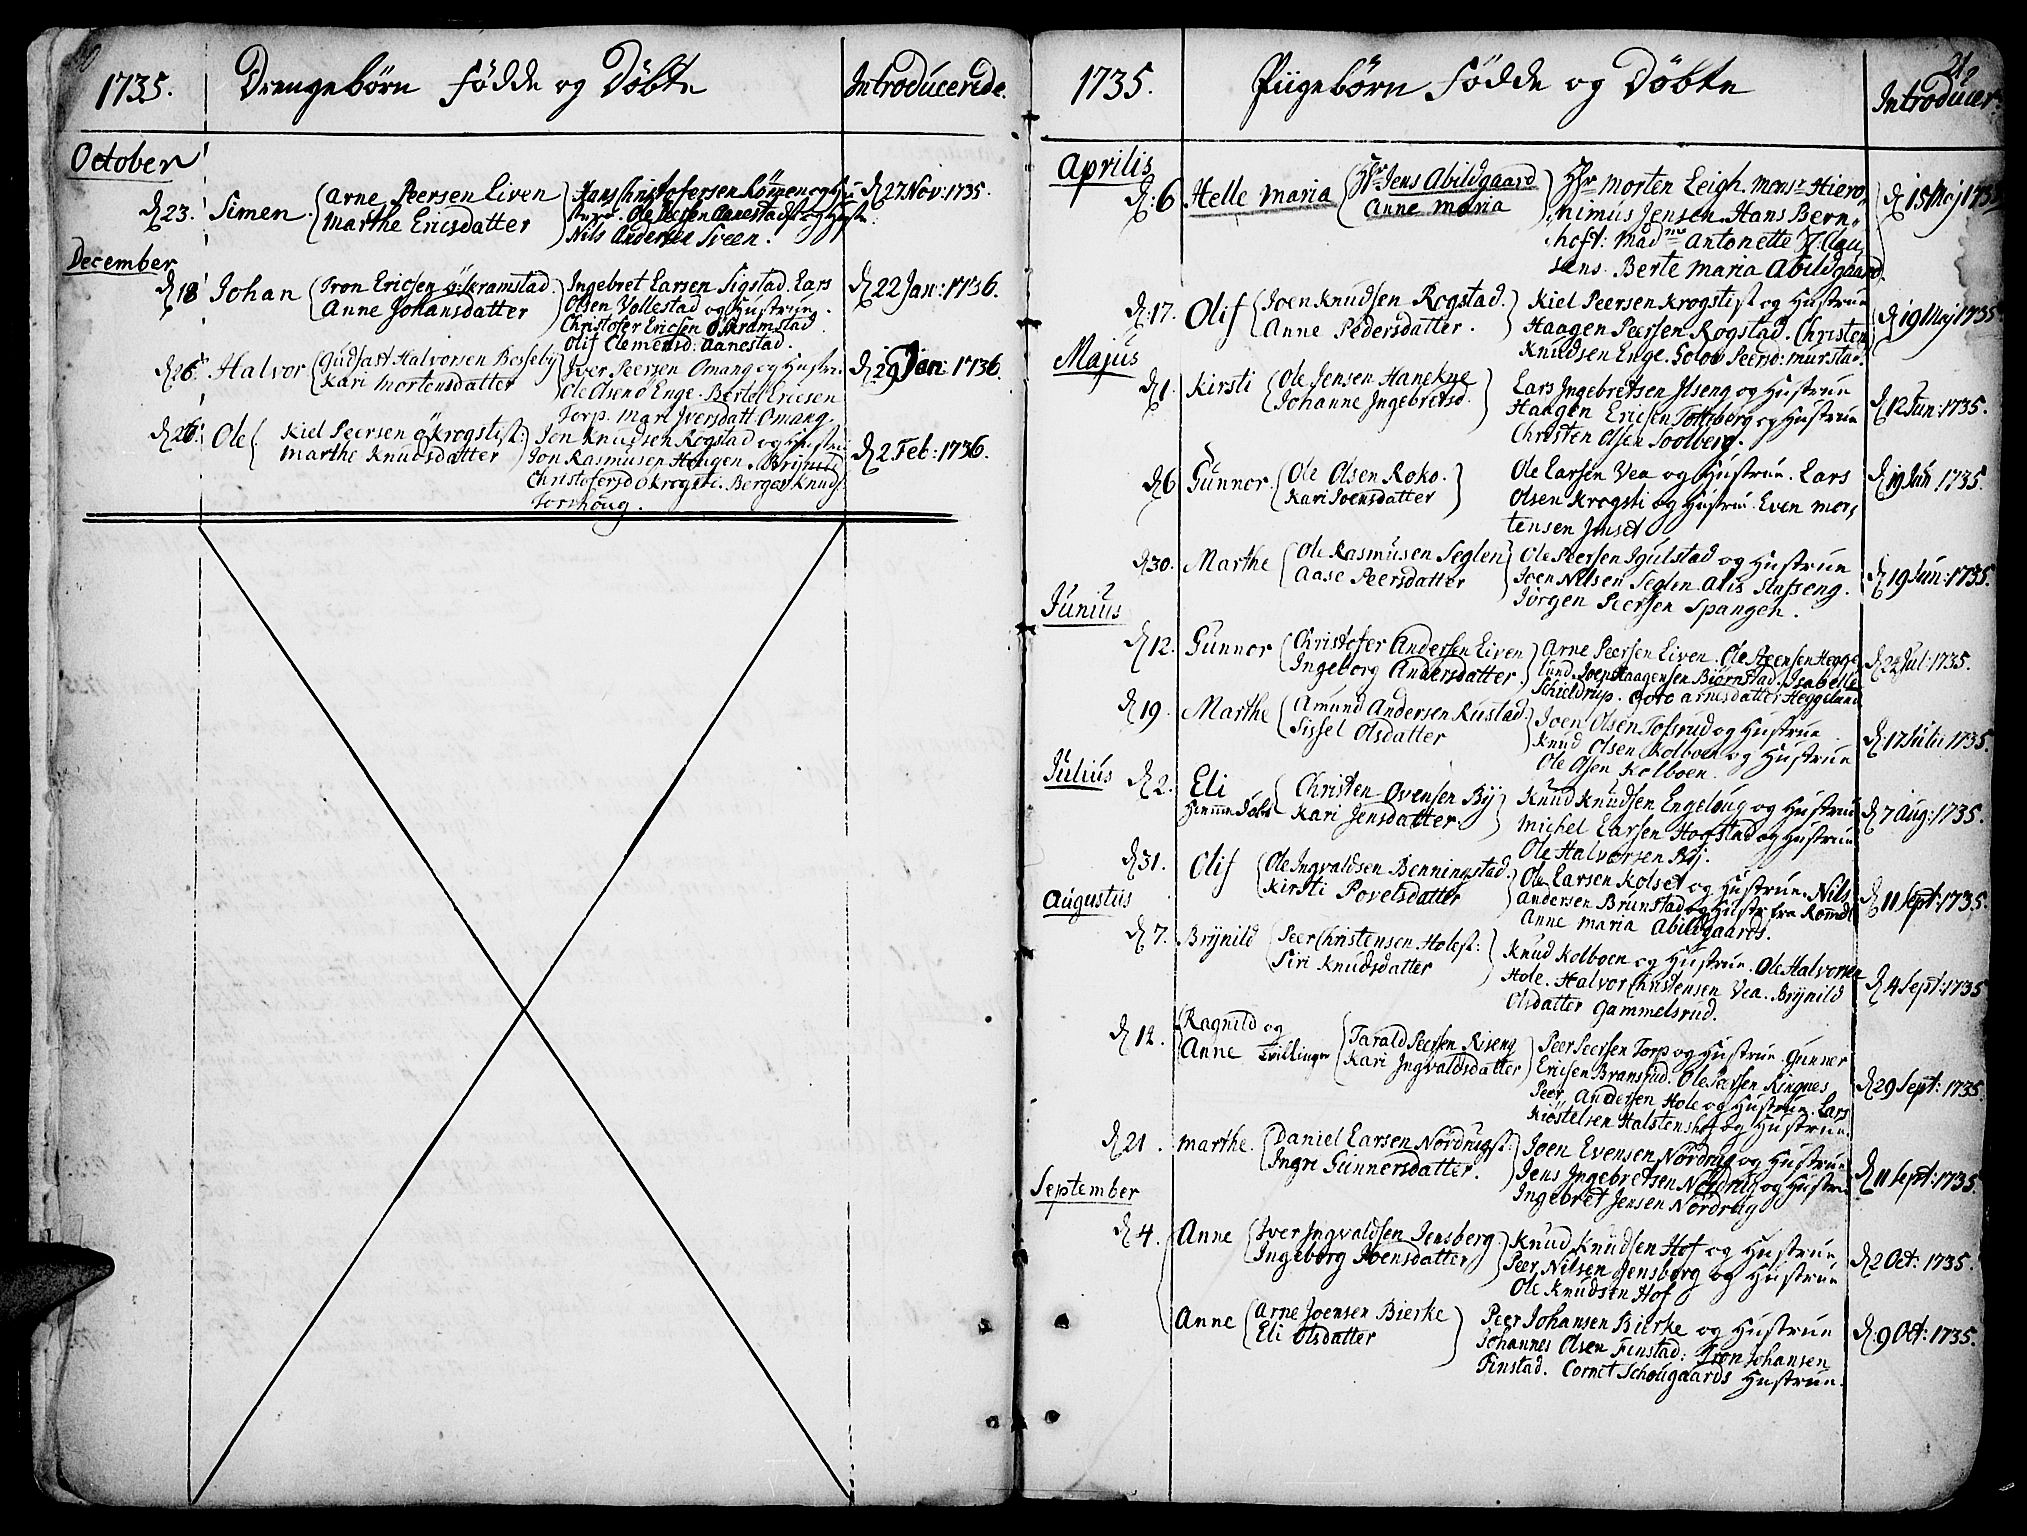 1735. Drengebörn Födde og Döbte Introducerede.
October
d 23. Simen. Arne Peersen Liven Hans Christofersen Römen og Hu- d 27 Nov: 1735.
Marthe Ericsdatter Ole Peersen Aanestad og
Nils Andersen Sveen.
December
d 18 Johan Tron Ericsen Ö: Kramstad. Ingebret Larsen Sigstad. Lars d 22 Jan: 1736.
Anne Johansdatter Olsen Vollestad og Hustrue.
Christofer Ericsen Ö Kramstad
Olif Clemensd: Aanestad.
d 26. Halvor Gudfast Halvorsen Berseby Iver Peersen Omang og Hustr: d 29 Jan: 1736.
Kari Mortensdatter Ole Olsen Enge. Bertel Ericsen
Torp. Mari Iversdatt. Omang.
d 26. Ole Kiel Peersen Ö Krogstist: Jon Knudsen Rogstad og Hustrue d 2 Feb: 1736.
Marthe Knudsdatter Jon Rasmusen Haugen. Brynild
Christofersd Ö Krogsti. Berger Knuds.
Tornhoug.
21
1735. Piigebörn Födde og Döbte Introducer:
Aprilis
d: 6 Helle Maria Hr Jens Abildgaard Hr Morten Leigh. Monsr Hiero- d 15 Maj 1735
Anne Maria nimus Jensen. Hans Bern-
hoft: Madme Antonette Clau-
sens. Berte Maria Abildgaard.
d. 17. Olif Joen Knudsen Rogstad. Kiel Peersen Krogstist og Hustrue d 19 Maj 1735
Anne Pedersdatter. Haagen Peersen Rogstad. Christen
Knudsen Enge. Solov Peersd: Murstad.
Majus
d 1. Kirsti Ole Jensen Hanekne Lars Ingebretsen Ilseng og Hustrue d 12 Jun: 1735.
Johanne Ingebretsd. Haagen Ericsen Tottberg og Hustrue
Christen Olsen Soolberg.
d 6 Gunnor. Ole Olsen Roko. Ole Larsen Vea og Hustrue. Lars d 19 Jun 1735.
Kari Joensdatter Olsen Krogsti og Hustrue. Even Mor-
tensen Jmset
d 30. Marthe Ole Rasmusen Seglen Ole Peersen Igulstad og Hustrue d 19 Jun: 1735.
Aase Peersdatter Joen Nilsen Seglen. Alis Stafseng.
Jörgen Peersen Spangen.
Junius
d 12. Gunnor Christofer Andersen Liven Arne Peersen Liven. Ole Steensen Hegge- d 24 Jul: 1735.
Ingeborg Andersdatter. lund. Joen Haagensen Biörnstad. Isabelle
Schieldrup. Goro Arnesdatter Heggelund
d 19. Marthe Amund Andersen Rustad. Joen Olsen Tofsrud og Hustrue d 17 Julii 1735.
Sissel Olsdatter Knud Olsen Kolboen og Hustrue
Ole Olsen Kolboen.
Julius d 2. Eli Christen Ovensen By Knud Knudsen Engeloug og Hustrue d 7 Aug: 1735.
Hiemme Döbt Kari Jensdatter. Michel Larsen Hogstad og Hustrue
Ole Halvorsen By.
d 31. Olif Ole Ingvaldsen Benningstad. Ole Larsen Kolset og Hustrue. Nils d 11 Sept: 1735.
Kirsti Povelsdatter Andersen Brunstad og Hustr fra Romd:
Anne Maria Abildgaards.
Augustus
d 7. Brynild Peer Christensen Holest: Knud Kolboen og Hustrue. Ole Halvorsen d 4 Sept: 1735
Siri Knudsdatter Hole. Halvor Christensen Vea. Brynild
Olsdatter Gammelsrud.
d 14. Ragnild og
Anne Tvillinger Tarald Peersen Riseng Peer Peersen Torp og Hustrue. Gunner d 29 Sept: 1735
Kari Ingvaldsdatter Ericsen Bransrud. Ole Peersen Ringnes
Peer Andersen Hole og Hustrue. Lars
Kiöstelsen Halstenshof og Hustrue.
d 21. Marthe. Daniel Larsen Nördrugst: Joen Evensen Nördrug og Hustrue d 11 Sept: 1735.
Ingri Gunnersdatter. Jens Ingebretsen Nördrug og Hustrue
Ingebret Jensen Nördrug
September
d 4. Anne Iver Ingvaldsen Jensberg. Knud Knudsen Hof og Hustrue d 2 Oct: 1735.
Ingeborg Joensdatter Peer Nilsen Jensberg og Hustrue
Ole Knudsen Hof
Anne Arne Joensen Bierke Peer Johansen Bierke og Hustrue d. 9 Oct: 1735.
Eli Olsdatter Johannes Olsen Finstad: Tron Johansen
Finstad. Cornet Schougaards Hustrue.